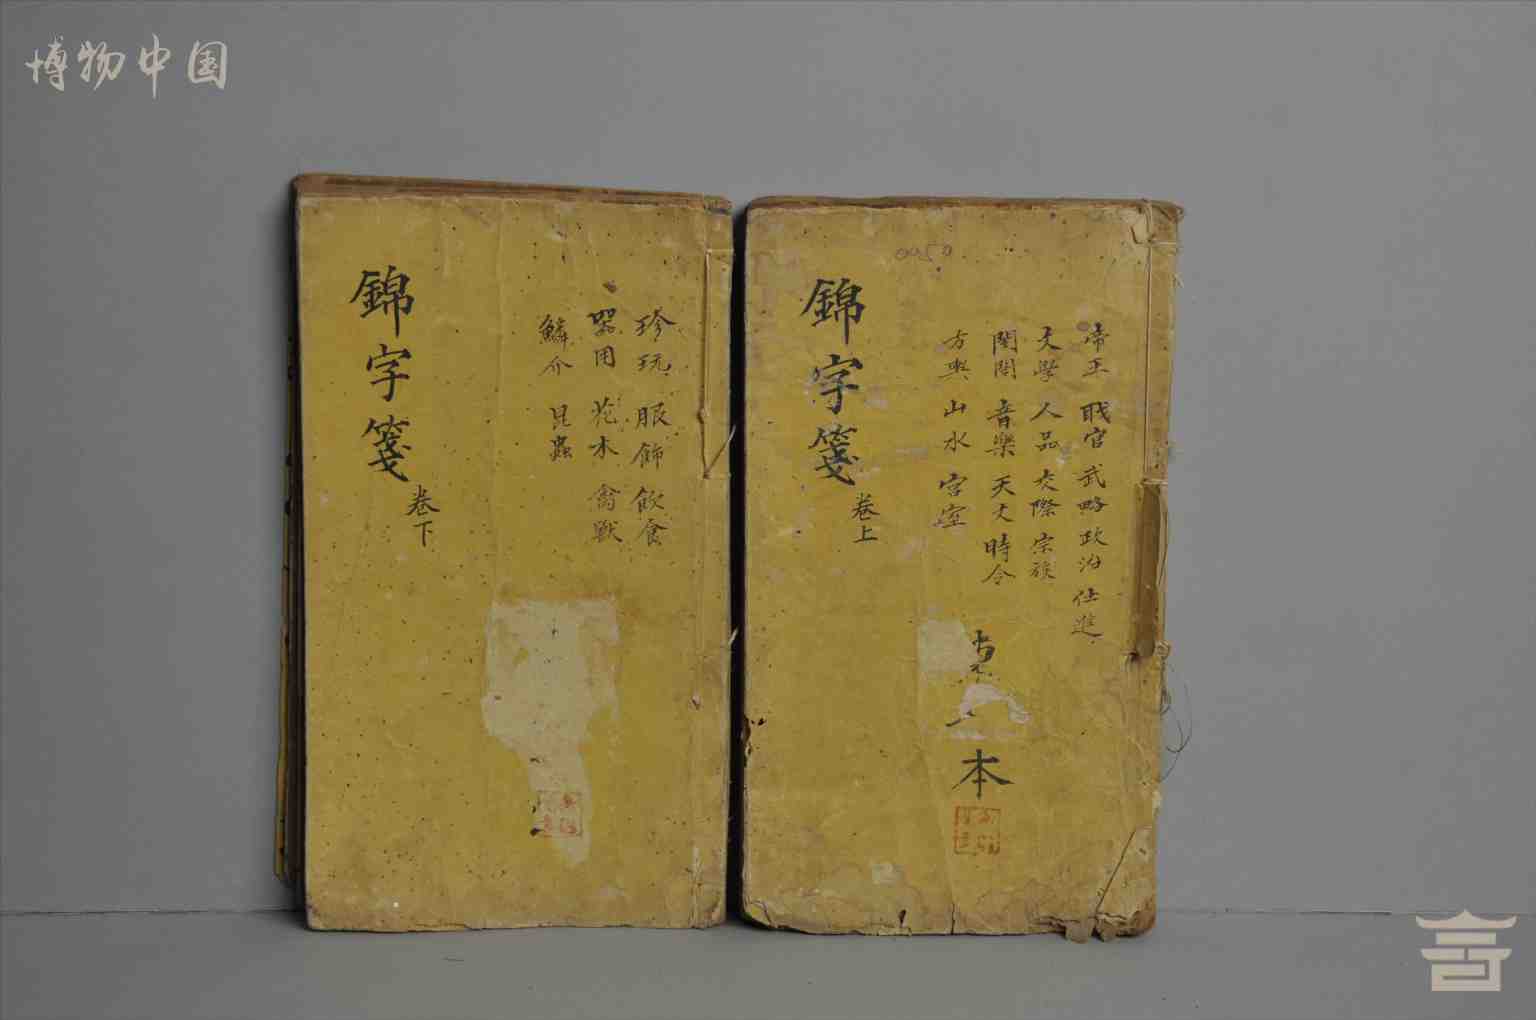 博物中国
0950
錦字箋
卷上
帝王 職官 武略 政治 仕進
文學 人品 交際 宗族
閨閤 音樂 天文 時令
方輿 山水 宮室
本
錦字箋
卷下
珍玩 服飾 飲食
器用 花木 禽獸
鱗介 昆蟲